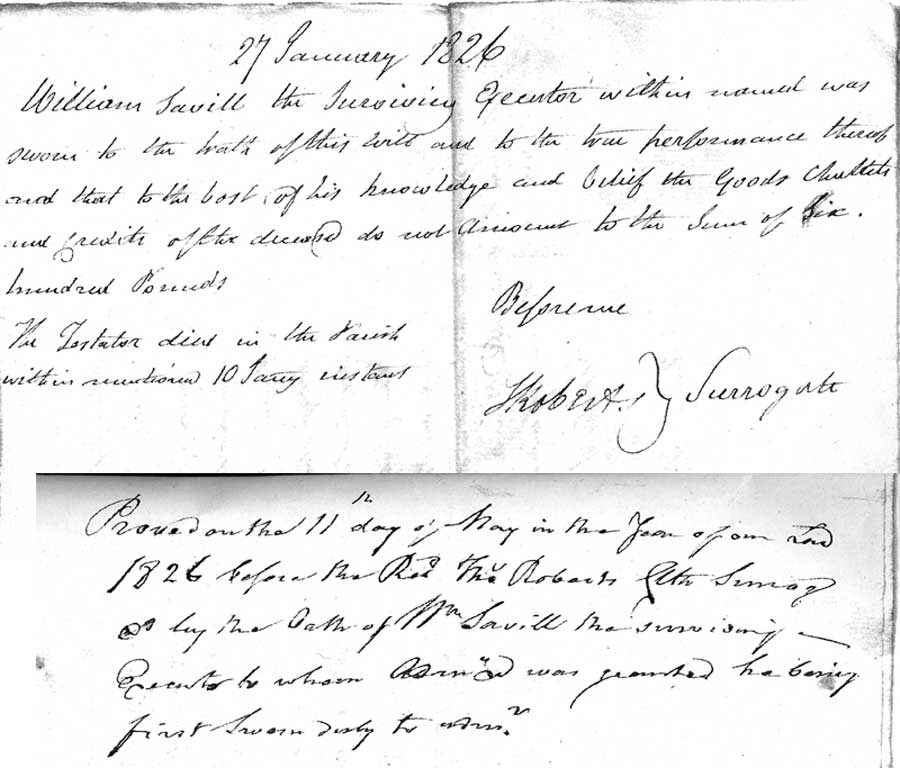 27 January 1826
William Savill the Surviving Executor within named was
sworn to the truth of this Will and to the true performance thereof
and that to the best of his knowledge and belief the Goods Chattels
and Credits of the deceased do not Amount to the Sum of Six
hundred Pounds
The Testator died in the Parish
within mentioned 10 Jany instant
Before me
TRoberts } Surrogate
Proved on the 11th day of May in the Year of our Lord
1826 before the Revd Thos Roberts Surrog
by the Oath of Wm Savill the surviving
Executor to whom Admn was granted he being
first Sworn duly to admr.